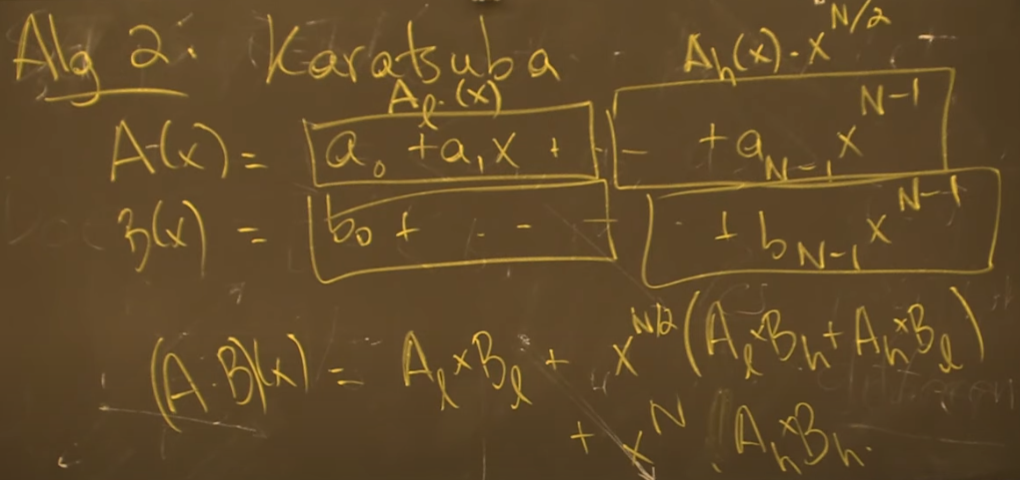 Alg 2: Karatsuba
A_l(x) A_h(x)·x^{N/2}
A(x) = a_0 + a_1 x + - + a_{N-1} x^{N-1}
B(x) = b_0 + - - + · + b_{N-1} x^{N-1}
(A·B)(x) = A_l×B_l + x^{N/2} (A_l×B_h + A_h×B_l)
+ x^N A_h×B_h.